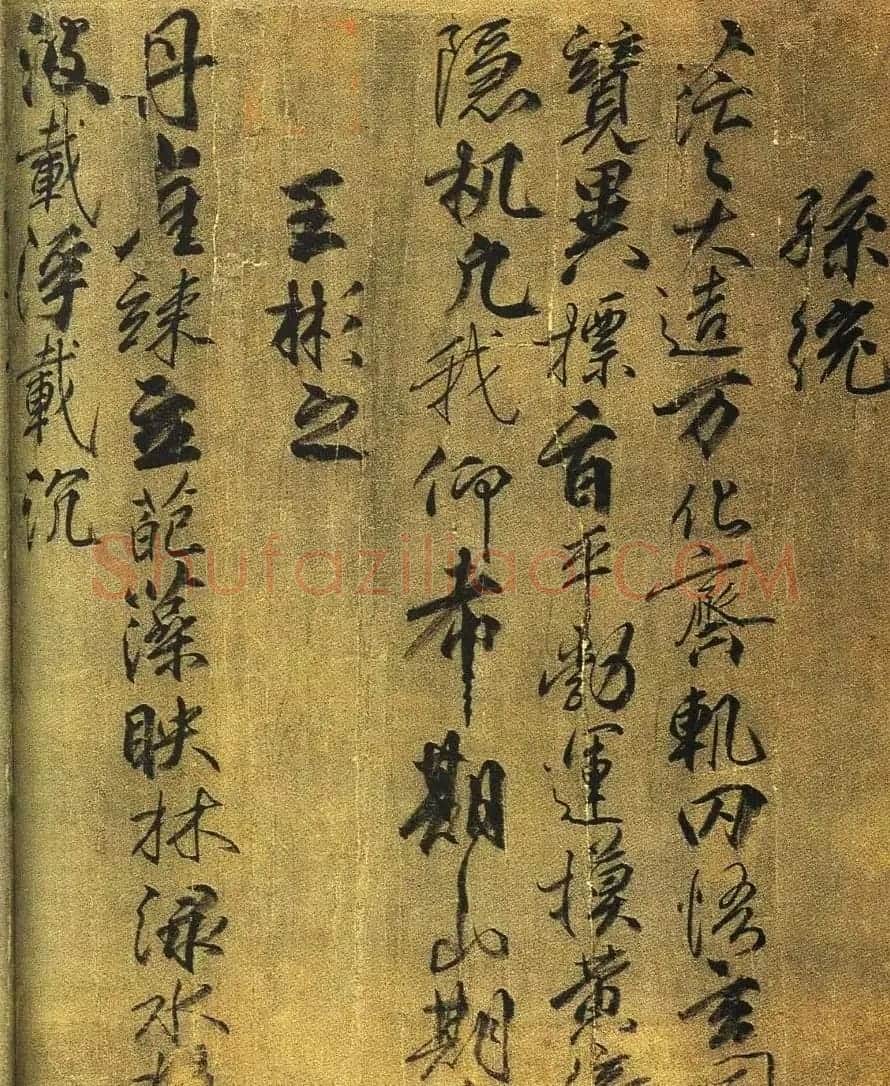 孫統
茫〻大造万化齊軌罔悟玄同
競異摽旨平勃運摸黄
隱机凡我仰希期山期
王彬之
丹崖竦立葩藻映林渌水
波載浮載沉
Shufaziliao.COM